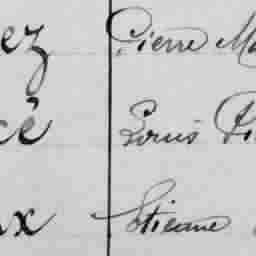 ez Pierre Ma
cé Louis Pi
ux Etienne